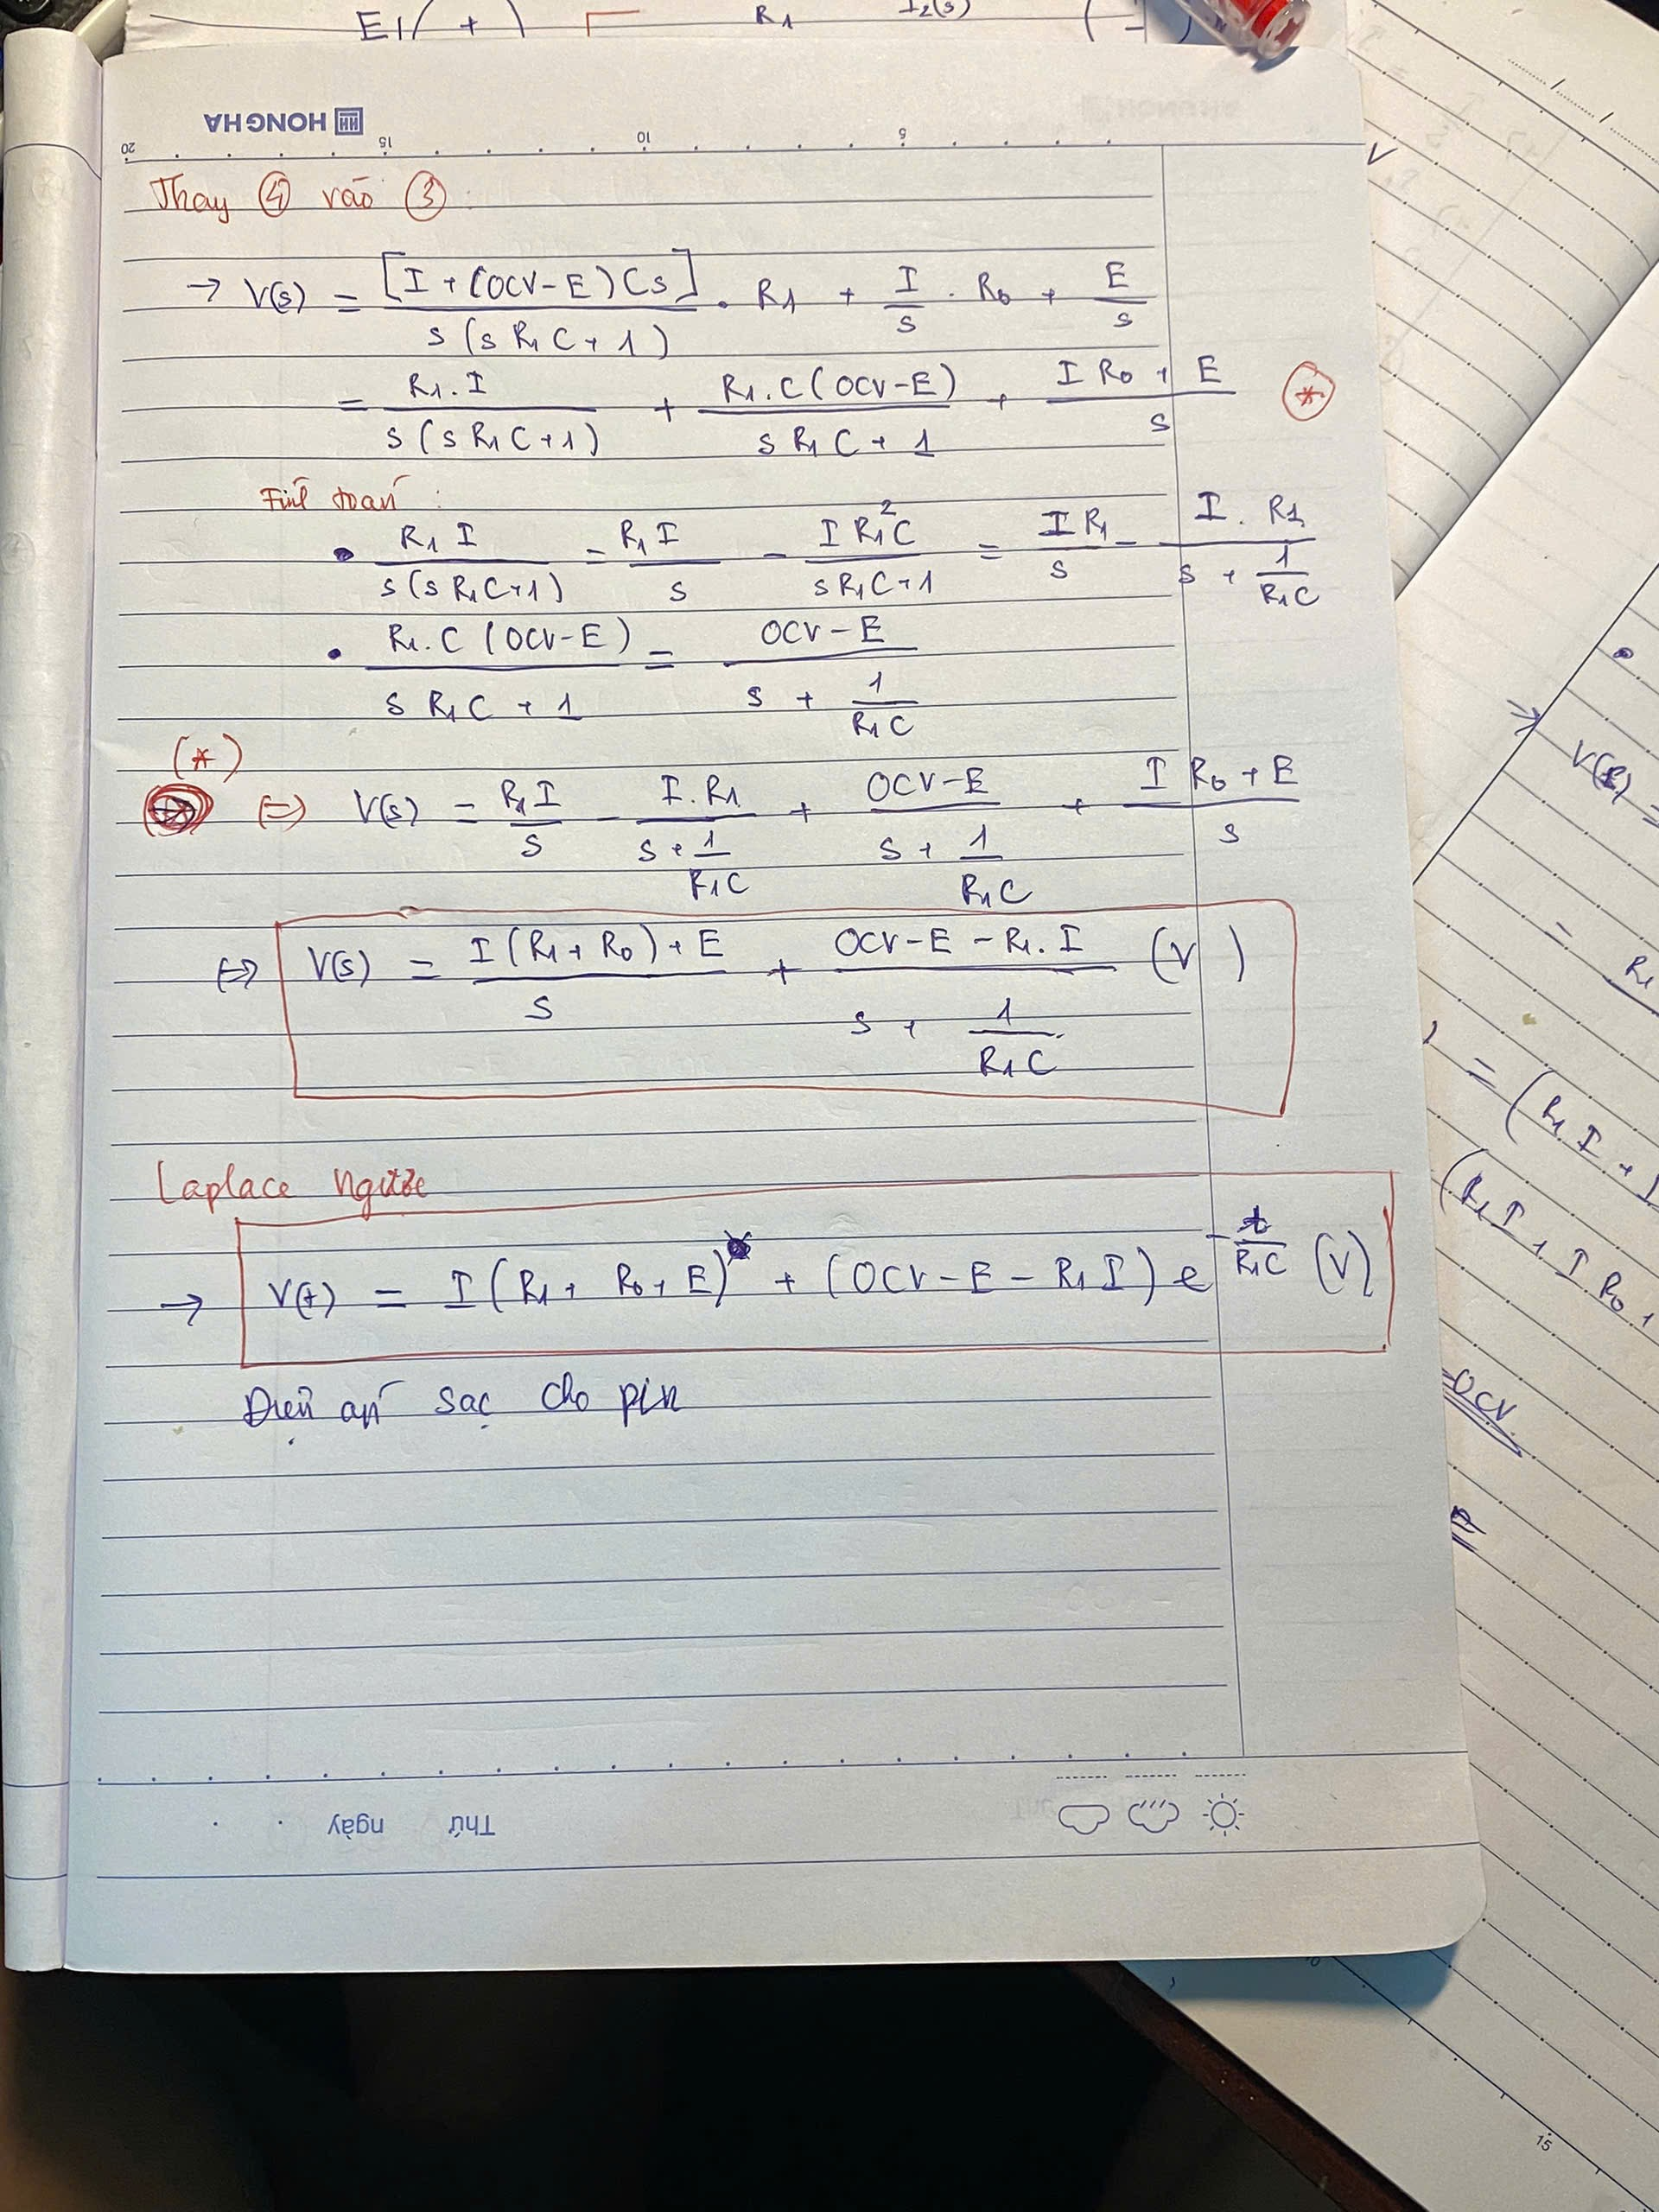 E1 ( + ) R1 I2(s) ( - )
HONG HA
20 15 10 5
Thay ④ vào ③ :
→ V(s) = [I + (OCV-E)Cs] / s(sR1C+1) . R1 + I/s . R0 + E/s
= R1.I / s(sR1C+1) + R1.C(OCV-E) / sR1C+1 + IR0 + E / s (*)
Tính toán :
• R1 I / s(sR1C+1) = R1 I / s - I R1²C / sR1C+1 = I R1 / s - I . R1 / s + 1/R1C
• R1.C (OCV-E) / s R1C + 1 = OCV-E / s + 1/R1C
(*)
⇔ V(s) = R1I / s - I.R1 / s + 1/R1C + OCV-E / s + 1/R1C + I R0 + E / s
⇔ V(s) = I(R1 + R0) + E / s + OCV-E - R1.I / s + 1/R1C (V)
Laplace Ngược
→ V(t) = I(R1 + R0 + E) + (OCV-E - R1 I) e^-t/R1C (V)
Điện áp sạc cho pin
Thứ ngày
V(s) =
= R1
= (R1 I +
(R1 I + I R0 +
-OCV
15